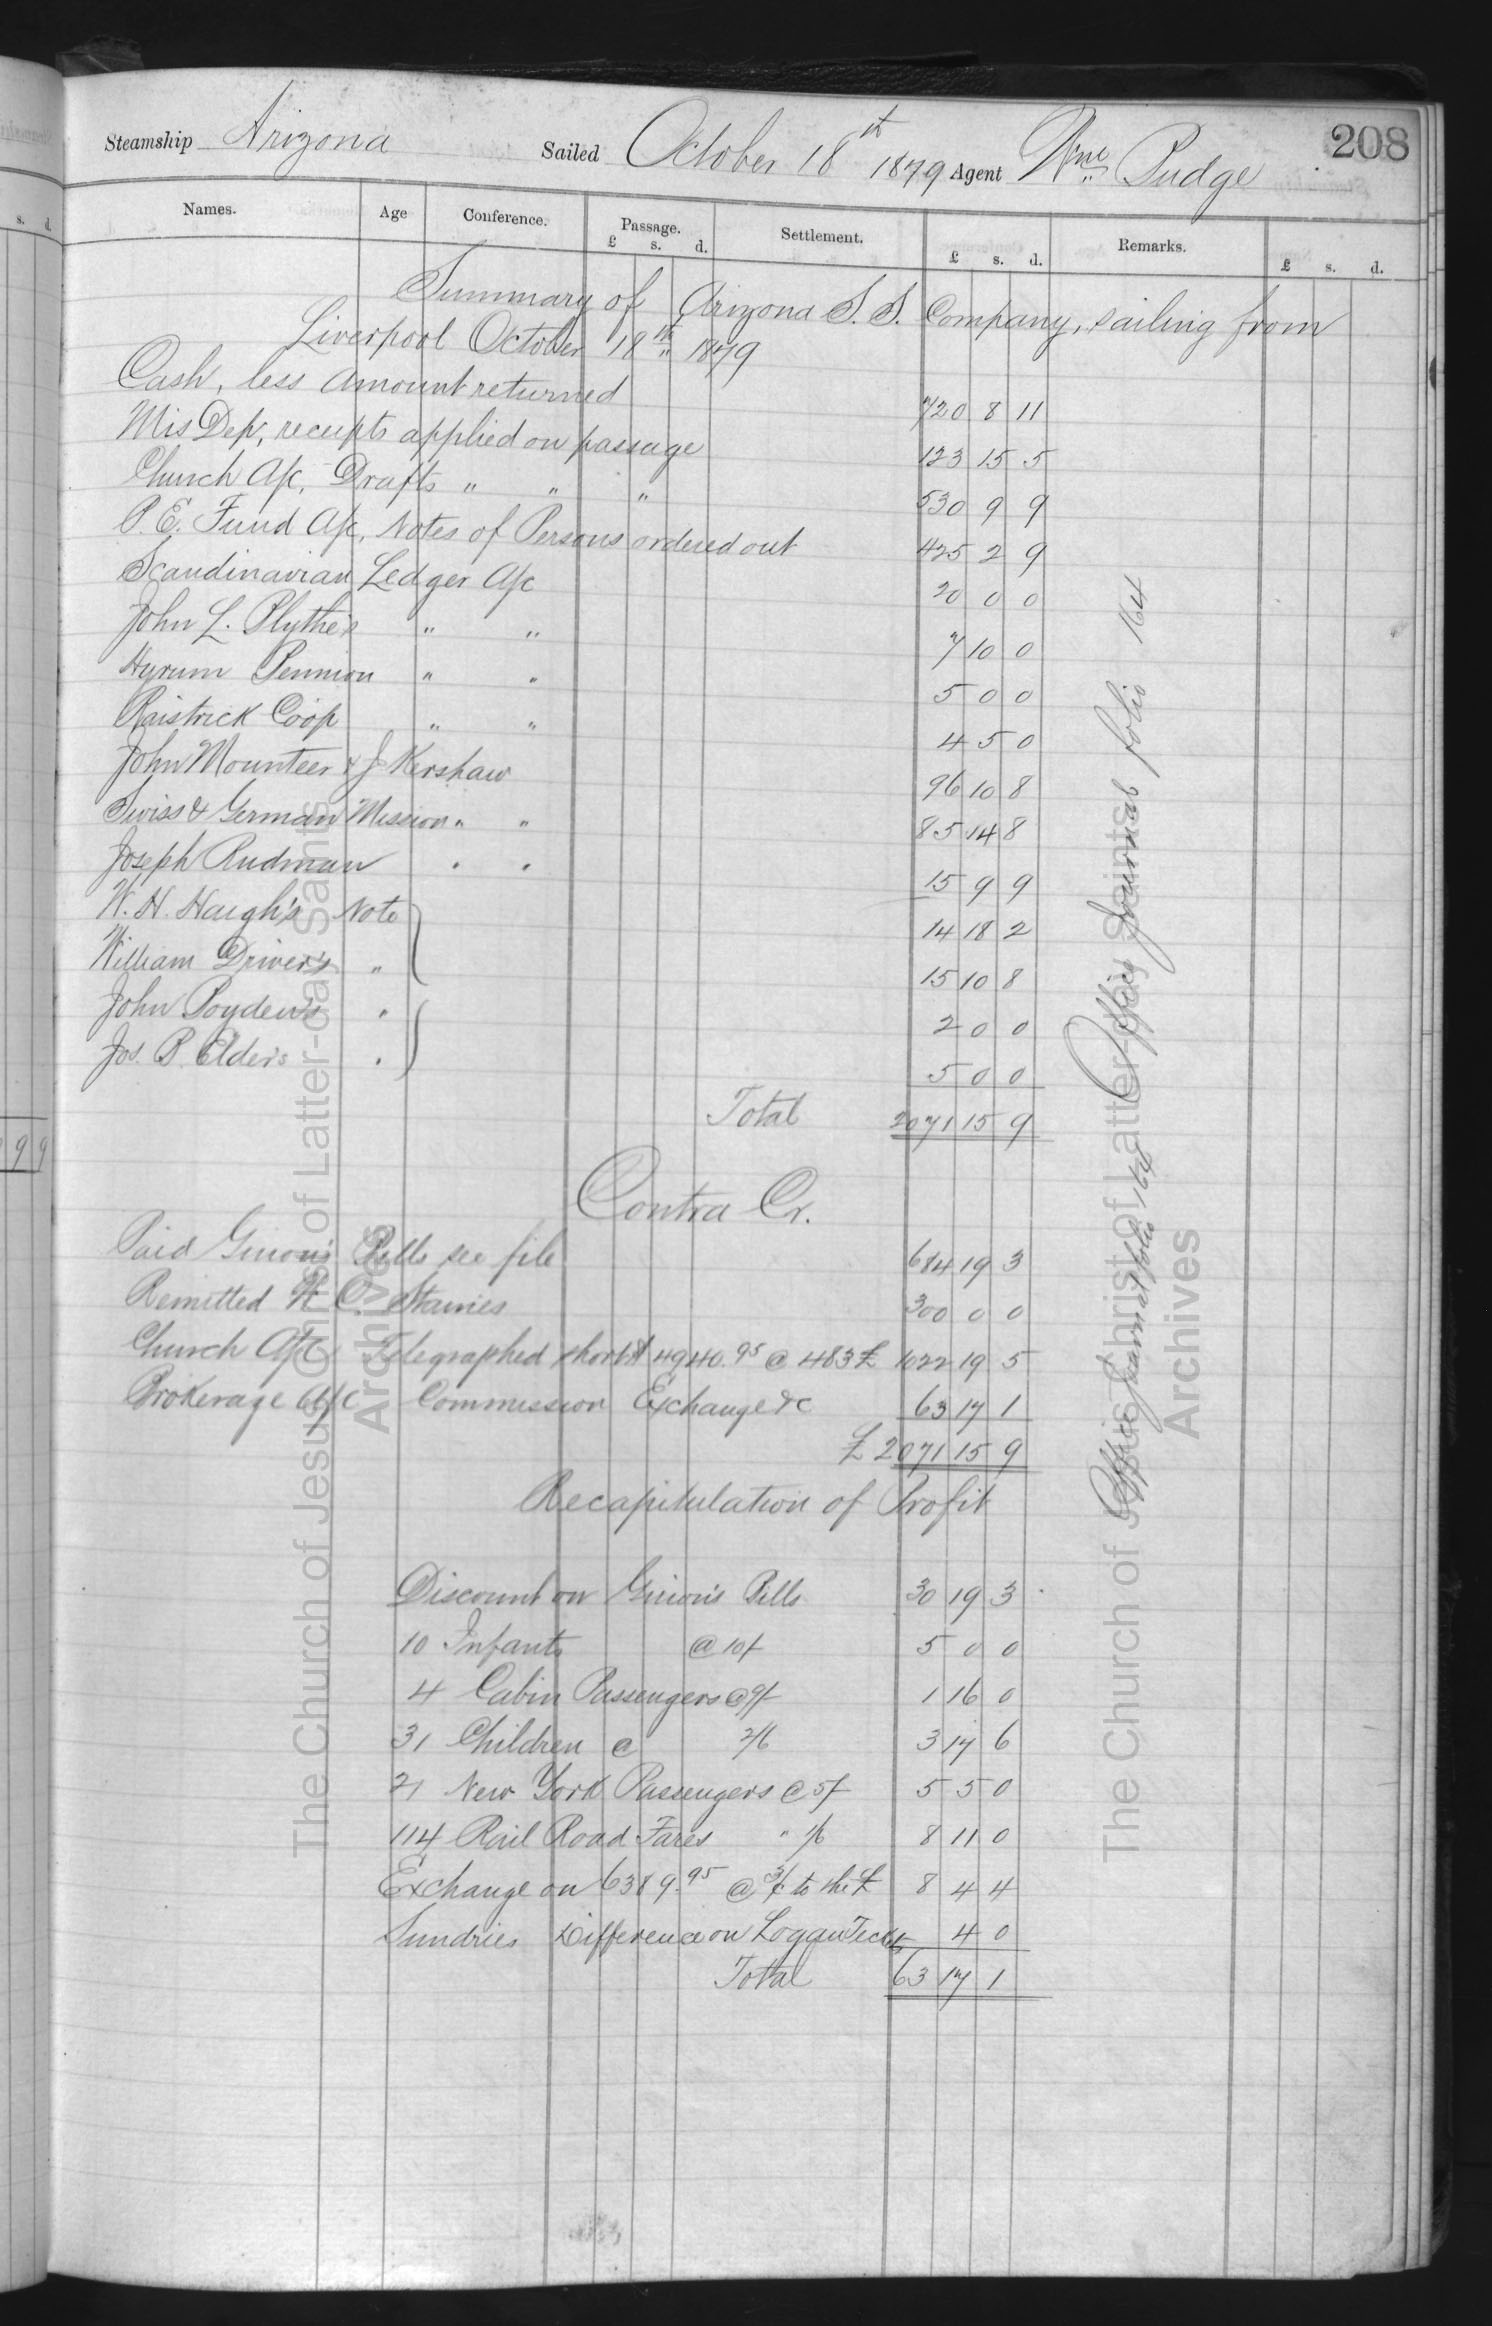 208
Steamship Arizona Sailed October 18th 1879 Agent Wm Budge
Names. Age Conference. Passage. £ s. d. Settlement. £ s. d. Remarks. £ s. d.
Summary of Arizona S. S. Company, sailing from
Liverpool October 18th 1879
Cash, less amount returned 720 8 11
Mis Dep, receipts applied on passage 123 15 5
Church A/c, Drafts " " " 530 9 9
P. E. Fund A/c, Notes of Persons ordered out 425 2 9
Scandinavian Ledger A/c 20 0 0
John L. Blythe's " " 7 10 0
Hyrum Bennion " " 5 0 0
Raistrick Coop " " 4 5 0
John Mounteer & J Kershaw 96 10 8
Swiss & German Mission " " 85 14 8
Joseph Rudman " " 15 9 9
W. H. Haigh's Note 14 18 2
William Driver's " 15 10 8
John Boyden's " 2 0 0
Jos. B. Elder's " 5 0 0
Total 2071 15 9
Contra Cr.
Paid Guion's Bills see file 684 19 3
Remitted W C. Staines 300 0 0
Church A/c Telegraphed short $4940.95 @ 483 £ 1022 19 5
Brokerage a/c Commission Exchange &c 63 17 1
£ 2071 15 9
Recapitulation of Profit
Discount on Guion's Bills 30 19 3
10 Infants @ 10/- 5 0 0
4 Cabin Passengers @ 9/- 1 16 0
31 Children @ 2/6 3 17 6
21 New York Passengers @ 5/- 5 5 0
114 Rail Road Fares " 1/6 8 11 0
Exchange on 6389.95 @ 3c to the £ 8 4 4
Sundries Difference on Logan Tickts 4 0
Total 63 17 1
Office Journal folio 164
Office Journal folio 164
The Church of Jesus Christ of Latter-day Saints
Archives
The Church of Jesus Christ of Latter-day Saints
Archives
s. d.
9 9